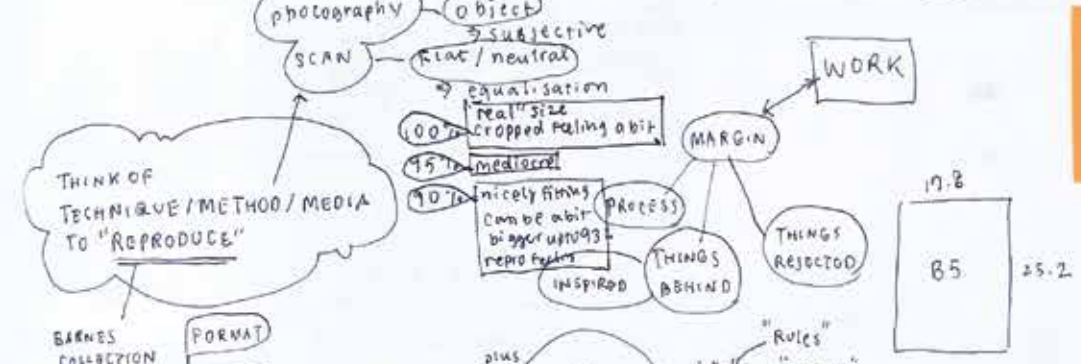 photography
object
→ subjective
SCAN
flat / neutral
⇒ equalisation
100%
"real" size
cropped feeling a bit
95%
mediocre
90%
nicely fitting
can be a bit
bigger upto 93
repro feeling
THINK OF
TECHNIQUE / METHOD / MEDIA
TO "REPRODUCE"
BARNES
COLLECTION
FORMAT
WORK
MARGIN
PROCESS
INSPIRED
THINGS
BEHIND
THINGS
REJECTED
17.8
B5
25.2
plus
"Rules"